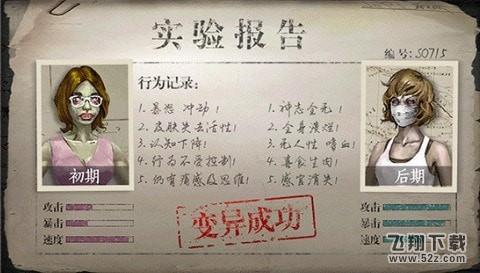 实验报告
编号: S0715
行为记录:
1. 暴怒 冲动!
2. 皮肤失去活性!
3. 认知下降!
4. 行为不受控制!
5. 仍有痛感及思维!
1. 神志全无!
2. 全身溃烂!
3. 无人性 嗜血!
4. 喜食生肉!
5. 感官消失!
初期
后期
攻击
暴击
速度
攻击
暴击
速度
变异成功
飞翔下载
www.52z.com